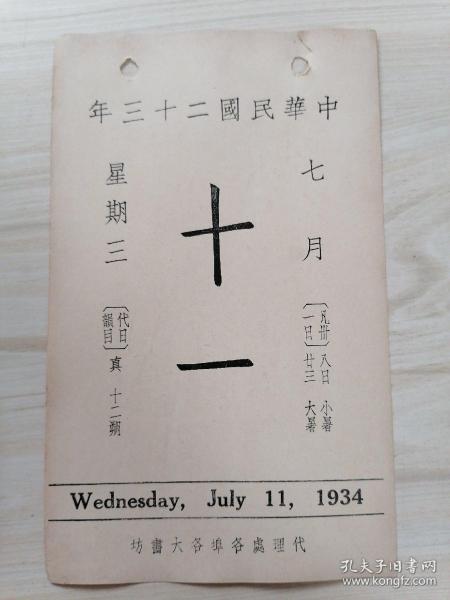 中華民國二十三年
七月
十一
星期三
〔凡卅一日〕
八日 小暑
廿三 大暑
〔代日韻目〕
真 十二朔
Wednesday, July 11, 1934
代理處各埠各大書坊
孔夫子旧书网
book.kongfz.com